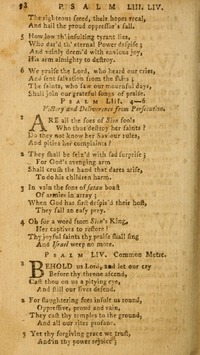 98 P S A L M LIII. LIV.
The righteous seed, their hopes recal,
And hail the proud oppressor's fall.
5 Now low th' insulting tyrant lies,
Who dar'd th' eternal Power despise;
And vainly deem'd with envious joy,
His arm almighty to destroy.
6 We praise the Lord, who heard our cries,
And sent salvation from the skies;
The saints, who saw our mournful days,
Shall join our grateful songs of praise.
P S A L M LIII. 4—6
Victory and Deliverance from Persecution.
1 ARE all the foes of Sion fools
Who thus destroy her saints?
Do they not know her Saviour rules,
And pities her complaints?
2 They shall be seiz'd with sad surprise;
For God's avenging arm
Shall crush the hand that dares arise,
To do his children harm.
3 In vain the sons of satan boast
Of armies in array;
When God has first despis'd their host,
They fall an easy prey.
4 Oh for a word from Sion's King,
Her captives to restore!
Thy joyful saints thy praise shall sing
And Israel weep no more.
P S A L M LIV. Common Metre.
1 BEHOLD us Lord, and let our cry
Before thy throne ascend,
Cast thou on us a pitying eye,
And still our lives defend.
2 For slaughtering foes insult us round,
Oppressive, proud and vain,
They cast thy temples to the ground,
And all our rites profane.
3 Yet thy forgiving grace we trust,
And in thy power rejoice;